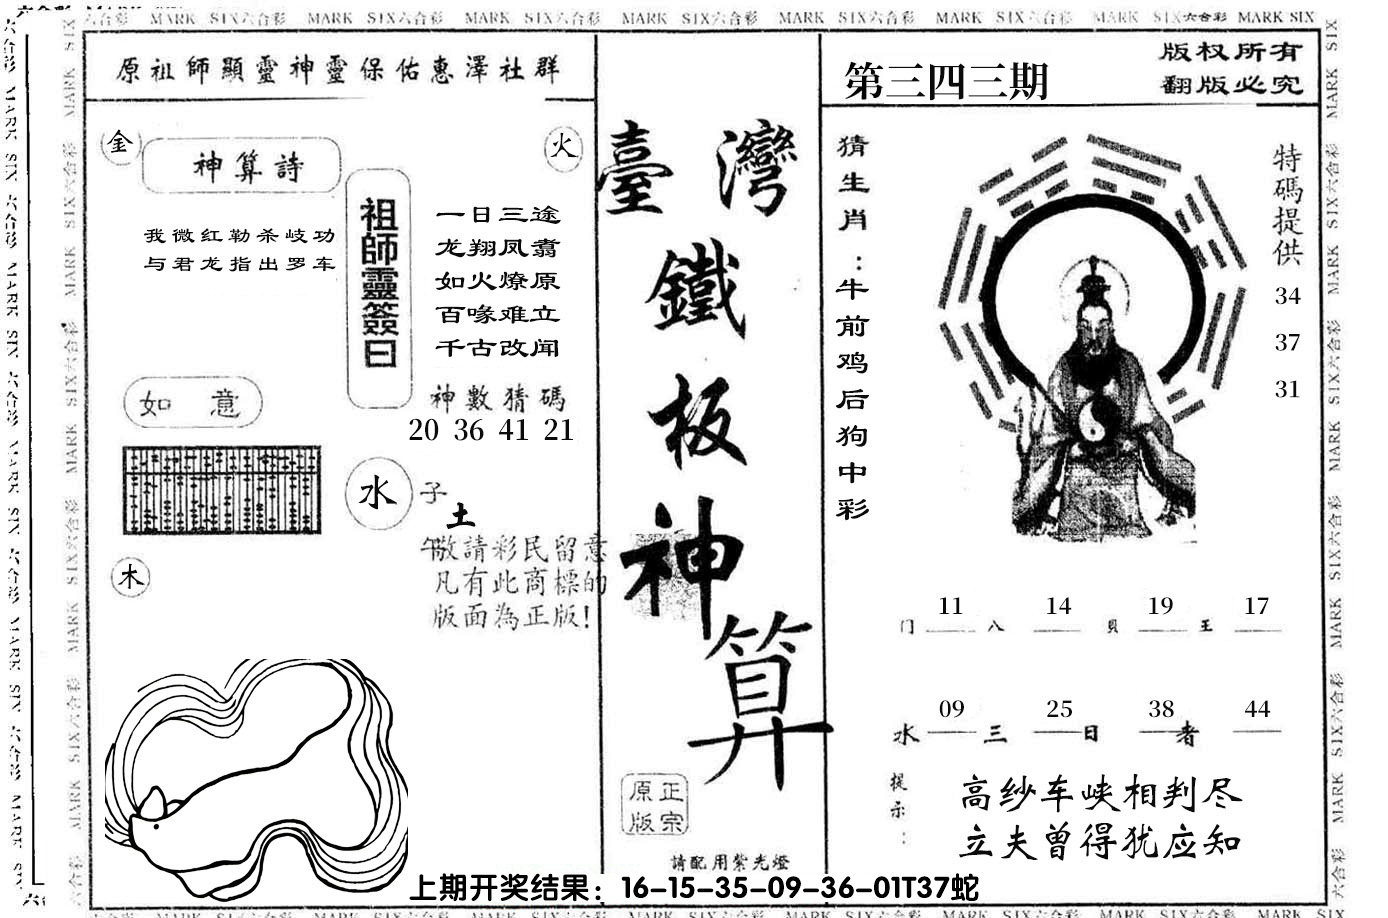 MARK SIX六合彩 MARK SIX六合彩 MARK SIX六合彩 MARK SIX六合彩 MARK SIX六合彩 MARK SIX六合彩 MARK SIX六合彩 MARK SIX
原祖師顯靈神靈保佑惠澤社群
金
火
神算詩
我微红勒杀岐功
与君龙指出罗车
祖師靈簽曰
一日三途
龙翔凤翥
如火燎原
百喙难立
千古改闻
神數猜碼
20 36 41 21
如意
水
子
土
午
木
敬請彩民留意
凡有此商標的
版面為正版!
臺灣
鐵
板
神
算
原正
版宗
請配用紫光燈
第三四三期
版权所有
翻版必究
猜生肖：牛前鸡后狗中彩
特碼提供
34
37
31
11 14 19 17
门 八 貝 王
09 25 38 44
水 三 日 者
提示：
高纱车峡相判尽
立夫曾得犹应知
上期开奖结果：16-15-35-09-36-01T37蛇